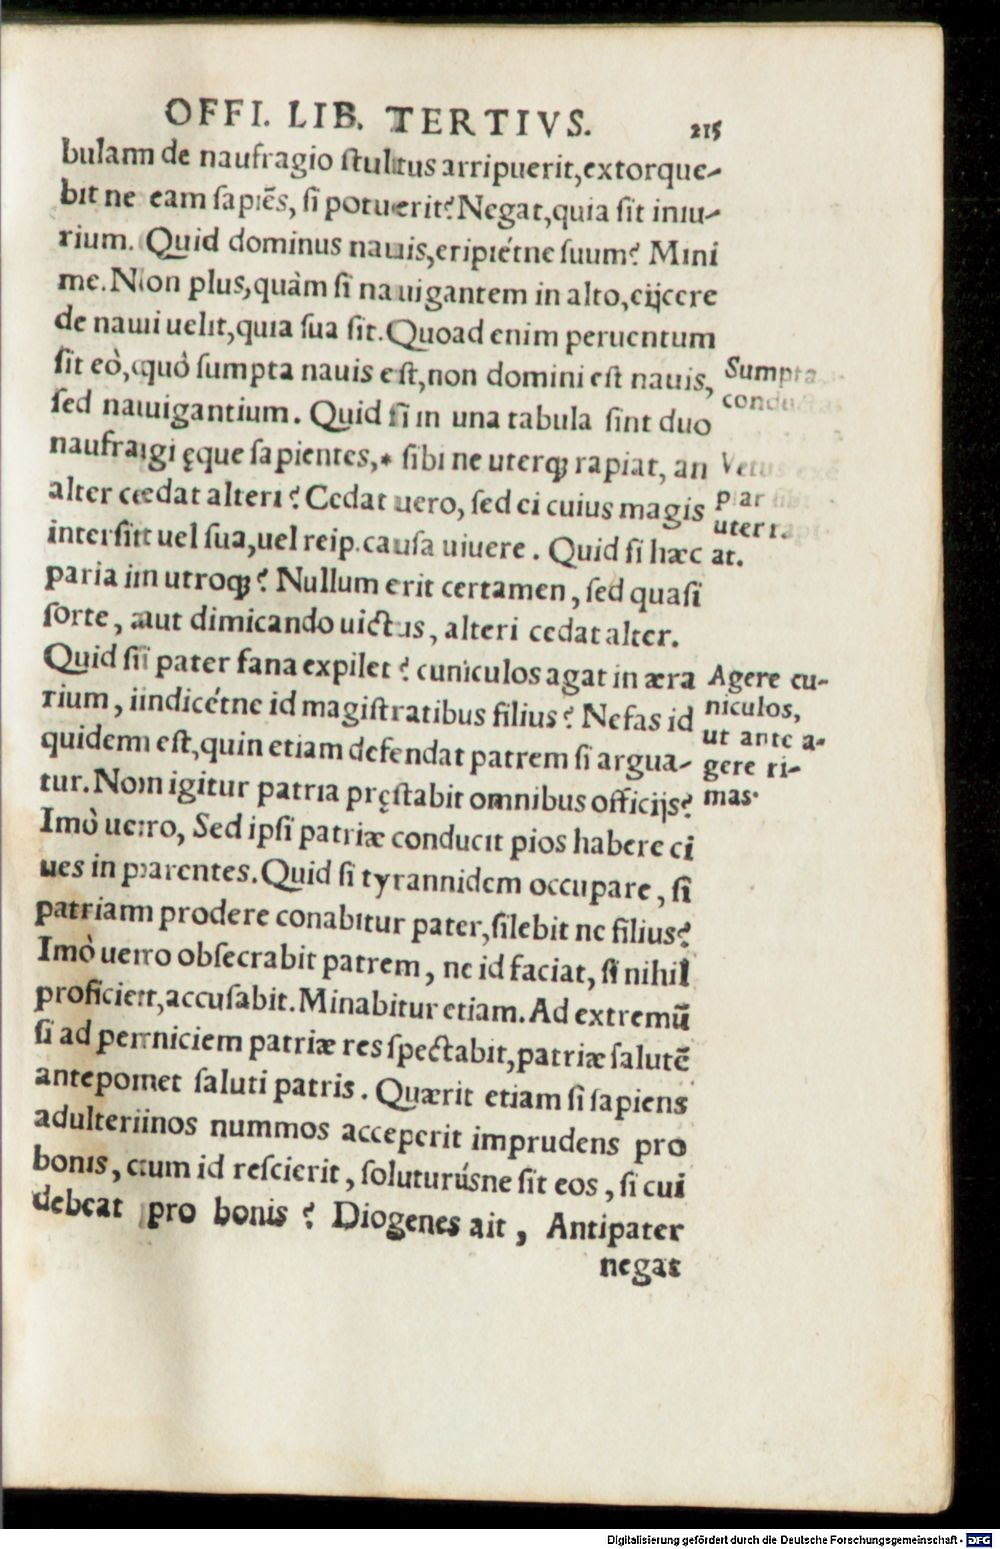 OFFI. LIB. TERTIVS. 215
bulam de naufragio ſtultus arripuerit,extorque-
bit ne eam ſapiẽs, ſi potuerit? Negat,quia ſit iniu-
rium. Quid dominus nauis,eripiétne ſuum? Mini
me. Non plus,quàm ſi nauigantem in alto,eijcere
de naui uelit,quia ſua ſit. Quoad enim peruentum
ſit eò,quò ſumpta nauis eſt,non domini eſt nauis,
ſed nauigantium. Quid ſi in una tabula ſint duo
naufragi ęque ſapientes,* ſibi ne uterq; rapiat, an
alter cedat alteri? Cedat uero, ſed ei cuius magis
interſit uel ſua,uel reip.cauſa uiuere. Quid ſi hæc
paria in utroq;? Nullum erit certamen, ſed quaſi
ſorte, aut dimicando uictus, alteri cedat alter.
Quid ſi pater fana expilet? cuniculos agat in æra
rium, indicétne id magiſtratibus filius? Nefas id
quidem eſt,quin etiam defendat patrem ſi argua-
tur. Non igitur patria pręſtabit omnibus officijs?
Imò uero, Sed ipſi patriæ conducit pios habere ci
ues in parentes. Quid ſi tyrannidem occupare, ſi
patriam prodere conabitur pater,ſilebit ne filius?
Imò uero obſecrabit patrem, ne id faciat, ſi nihil
proficiet,accuſabit. Minabitur etiam. Ad extremũ
ſi ad perniciem patriæ res ſpectabit,patriæ ſalutẽ
anteponet ſaluti patris. Quærit etiam ſi ſapiens
adulterinos nummos acceperit imprudens pro
bonis, cum id reſcierit, ſoluturúsne ſit eos, ſi cui
debeat pro bonis? Diogenes ait, Antipater
negat
Sumpta
conducta
Vetus
par
uter
at.
Agere cu-
niculos,
ut ante a-
gere ri-
mas.
Digitalisierung gefördert durch die Deutsche Forschungsgemeinschaft - DFG